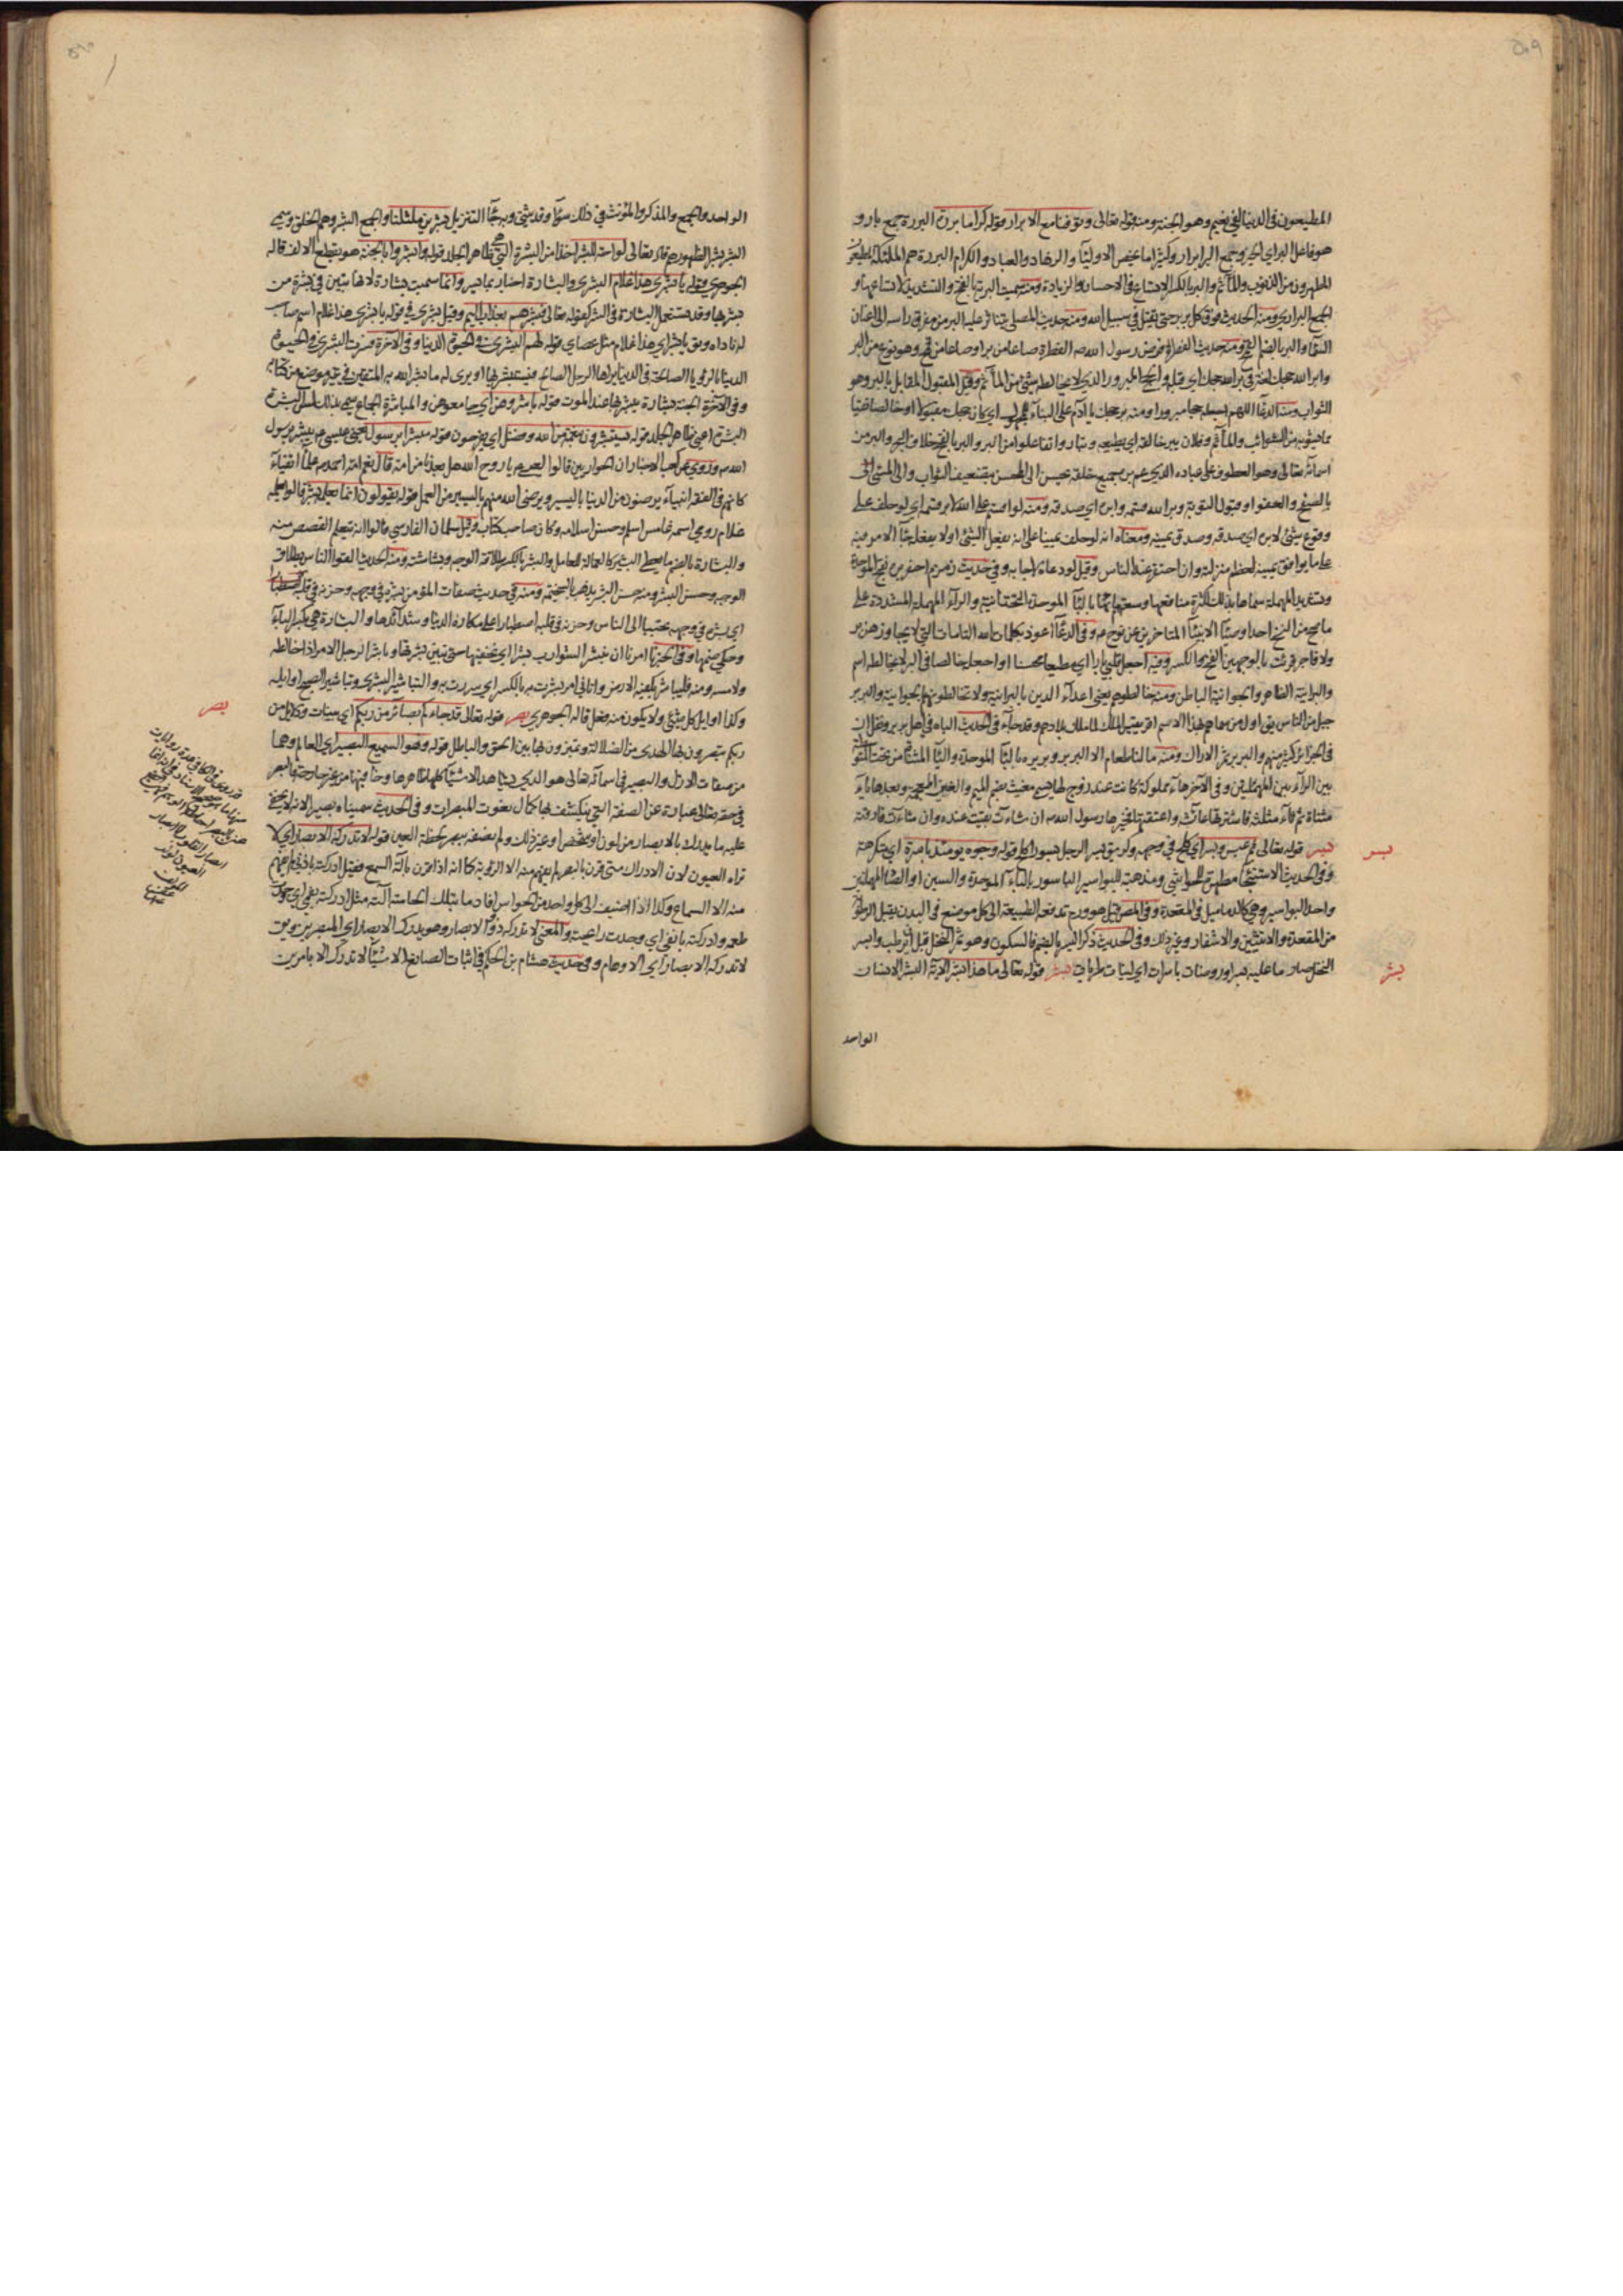 ٥٠٩
المطيعون في الدنيا لفي نعيم وهو الجنة ومنه قوله تعالى وتوفنا مع الابرار وقوله كراما بررة البررة جمع بار و
هو فاعل البر اي الخير وجمع البر ابرار وكثيرا ما يخص الاولياء والزهاد والعباد والكرام البررة هم الملئكة
المطهرون من الذنوب والمآثم والبر بالكسر الاتساع في الاحسان والزيادة ومنه سميت البرية بالفتح والتشديد لاتساعها و
الجمع البراري ومنه الحديث فوق كل بر بر حتى يقتل في سبيل الله ومنه حديث المصلي يتناثر عليه البر من مفرق راسه الى اعنان
السماء والبر بالضم القمح ومنه حديث الفطرة فرض رسول الله ص الفطرة صاعا من بر او صاعا من قمح وهو نوع من البر
وابر الله حجك لغة في بر الله حجك اي قبله والحج المبرور الذي لا يخالطه شئ من المآثم وقيل المقبول المقابل بالبر وهو
الثواب ومنه الدعاء اللهم اجعله حجا مبرورا ومنه بر حجك يا ادم على البناء للمجهول اي كان حجك مقبولا او خالصا نقيا
مما يشوبه من الشوائب والمآثم وفلان يبر خالقه اي يطيعه وتباروا تفاعلوا من البر والبر بالفتح خلاف البحر والبر من
اسمائه تعالى وهو العطوف على عباده الذي عم بره جميع خلقه يحسن الى المحسن بتضعيف الثواب والى المسئ
بالصفح والعفو او قبول التوبة وبر الله قسمه وابره اي صدقه ومنه لو اقسم على الله لابر قسمه اي لو حلف على
وقوع شئ لابره اي صدقه وصدق يمينه ومعناه انه لو حلف يمينا على انه يفعل الشئ او لا يفعل جاء الامر فيه
على ما يوافق يمينه لعظم منزلته وان احتقر عند الناس وقيل لو دعاه لاجابه وفي حديث زمزم احفر بره بفتح الموحدة
وتشديد المهملة سماها بذلك لكثرة منافعها وسعة مائها
ما صح من النسخ وفي الدعاء اعوذ بكلمات الله التامات التي لا يجاوزهن بر
ولا فاجر قرئت بالوجهين الفتح والكسر وفيه اجعل قلبي بارا اي مطيعا محسنا او اجعله خالصا في البر لا يخالطه اسم
والبرانية الظاهر والجوانية الباطن ومنه خالطوهم يعني اعداء الدين بالبرانية ولا تخالطوهم بالجوانية والبربر
جيل من الناس يق اول من سماهم بهذا الاسم افريقيس الملك لما ملك بلادهم وقد جاء في الحديث الباه في اهل بربر
والبرير ثمر الاراك ومنه ما لنا طعام الا البرير وبريرة بالباء الموحدة والياء المثناة من تحت
بين الرائين المهملتين وفي الاخر هاء مملوكة كانت عند زوج لها يسمى مغيث بضم الميم والغين المعجمة وبعدها ياء
مثناة ثم ثاء مثلثة فاشترتها عائشة واعتقتها فخيرها رسول الله ص ان شاءت بقيت عنده وان شاءت فارقته
بسر
بسر قوله تعالى ثم عبس وبسر اي كلح في وجهه وكره يق بسر الرجل بسورا كلح قوله وجوه يومئذ باسرة اي متكرهة
وفي الحديث الاستنجاء مطهرة للحواشي ومذهبة للبواسير الباسور بالباء الموحدة والسين او الصاد المهملتين
واحد البواسير وهي كالدماميل في المقعدة وفي المص قيل هو ورم تدفعه الطبيعة الى كل موضع في البدن يقبل الرطوبة
من المقعدة والانثيين والاشفار وغير ذلك وفي الحديث ذكر البسر بالضم فالسكون وهو ثمر النخل قبل ان يرطب وابسر
بشر
النخل صار ما عليه بسرا وروضات باسرات اي لينات طريات بشر قوله تعالى ما هذا بشرا الاية البشر الانسان
الواحد
٥١٠
الواحد والجمع والمذكر والمؤنث في ذلك سواء وقد يثنى وبه جاء التنزيل لبشرين مثلنا والجمع البشر وهم الخلق وسمي
البشر بشرا لظهورهم قال تعالى لواحة للبشر اخذا من البشرة التي هي ظاهر الجلد قوله وابشروا بالجنة هو بقطع الالف قاله
الجوهري وقوله يا بشرى هذا غلام البشرى والبشارة اخبار بما يسر وانما سميت بشارة لانها تتبين في بشرة من
بشر بها وقد تستعمل البشارة في الشر كقوله تعالى فبشرهم بعذاب اليم وقيل بشرى في قوله يا بشرى هذا غلام اسم صاحب
له ناداه ويق يا بشراي هذا غلام مثل عصاي قوله لهم البشرى في الحيوة الدنيا وفي الآخرة فسرت البشرى في الحيوة
الدنيا بالرؤيا الصالحة في الدنيا يراها الرجل الصالح فيستبشر بها او يرى له ما بشر الله به المتقين في غير موضع من كتابه
وفي الآخرة الجنة بشارة يبشر بها عند الموت قوله باشروهن اي جامعوهن والمباشرة الجماع سمي بذلك لمس البشرة
البشرة اعني ظاهر الجلد قوله يستبشرون بنعمة من الله وفضل اي يفرحون قوله مبشرا برسول يعني عيسى ع يبشر برسول
الله ص وروي عن كعب الاحبار ان الحواريين قالوا لعيسى ع يا روح الله هل بعدنا من امة قال نعم امة احمد ص علماء اتقياء
كانهم في الفقه انبياء يرضون من الدنيا باليسير ويرضى الله منهم باليسير من العمل قوله يقولون انما يعلمه بشر قالوا يعلمه
غلام رومي اسمه عابس اسلم وحسن اسلامه وكان صاحب كتاب وقيل سلمان الفارسي قالوا انه يتعلم القصص منه
والبشارة بالضم ما يعطى البشير كالعمالة للعامل والبشر بالكسر طلاقة الوجه وبشاشته ومنه الحديث القوا الناس بطلاقة
الوجه وحسن البشر ومنه حسن البشر يذهب بالسخيمة ومنه في حديث صفات المؤمن بشره في وجهه وحزنه في قلبه
اي بشره في وجهه تحببا الى الناس وحزنه في قلبه اصطبارا على مكاره الدنيا وشدائدها والبشارة هي بكسر الباء
وحكي ضمها وفي الخبر امرنا ان نبشر الشوارب بشرا اي نحفيها حتى تبين بشرتها وباشر الرجل الامر اذا خالطه
ولامسه ومنه فليباشر بكفيه الارض واتاني امر بشرت به بالكسر اي سررت به والتباشير البشرى وتباشير الصبح اوايله
بصر
وكذا اوايل كل شئ ولا يكون منه فعل قاله الجوهري بصر قوله تعالى قد جاءكم بصائر من ربكم اي بينات ودلايل من
ربكم تبصرون بها الهدى من الضلالة وتميزون بها بين الحق والباطل قوله وهو السميع البصير اي العالم وهما
من صفات الازل والبصير في اسمائه تعالى هو الذي يشاهد الاشياء كلها ظاهرها وخافيها من غير جارحة فالبصر
في حقه تعالى عبارة عن الصفة التي ينكشف بها كمال نعوت المبصرات وفي الحديث سميناه بصيرا لانه لا يخفى
عليه ما يدرك بالابصار من لون او شخص او غير ذلك ولم نصفه ببصر لحظة العين قوله لا تدركه الابصار اي لا
تراه العيون لان الادراك متى قرن بالبصر لم يفهم منه الا الرؤية كما انه اذا قرن بآلة السمع فقيل ادركته باذني لم يفهم
منه الا السماع وكذا اذا اضيف الى كل واحد من الحواس افاد ما بتلك الحاسة آلته مثل ادركته بفمي اي وجدت
طعمه وادركته بانفي اي وجدت رائحته والمعنى لا تدركه ذوو الابصار وهو يدرك الابصار اي المبصرين ويق
لا تدركه الابصار اي الاوهام وفي حديث هشام بن الحكم في اثبات الصانع الاشياء لا تدرك الا بامرين